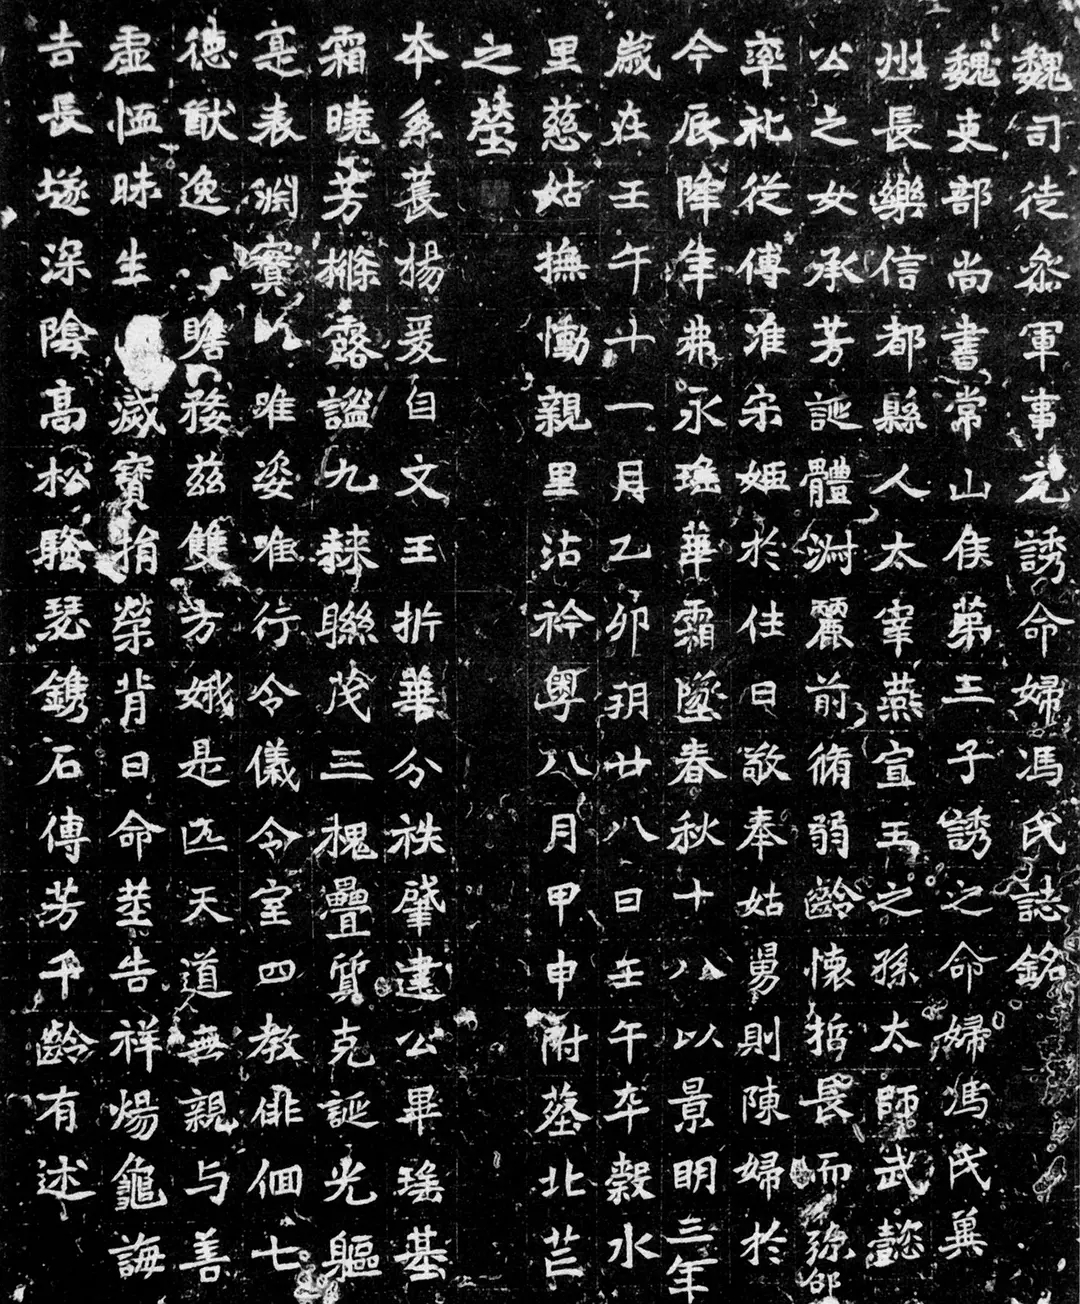 魏司徒叅軍事元誘命婦馮氏誌銘
魏吏部尚書常山侯第三子誘之命婦馮氏兾
州長樂信都縣人太宰燕宣王之孫太師武懿
公之女承芳誕體淵麗前脩弱齡懷哲長而弥邵
率礼從傅准宋姬於往日敬奉姑舅則陳婦於
今辰降年弗永瑤華霜墜春秋十八以景明三年
歲在壬午十一月乙卯玥廿八日壬午卒穀水
里慈姑撫慟親里沾衿粵八月甲申附塟北芒
之塋
本系萇楊爰自文王折華分袟肇建公畢瑤基
霜曉芳條露謐九棘聯茂三槐疊質克誕光軀
寔表淵實 唯姿唯行令儀令室四教俳佪七
德猷逸 瞻務茲雙方娥是匹天道無親与善
虛恤昧生 滅寶捐榮背日命塟告祥煬龜誨
吉長墜深陰高松騷瑟鐫石傳芳千齡有述